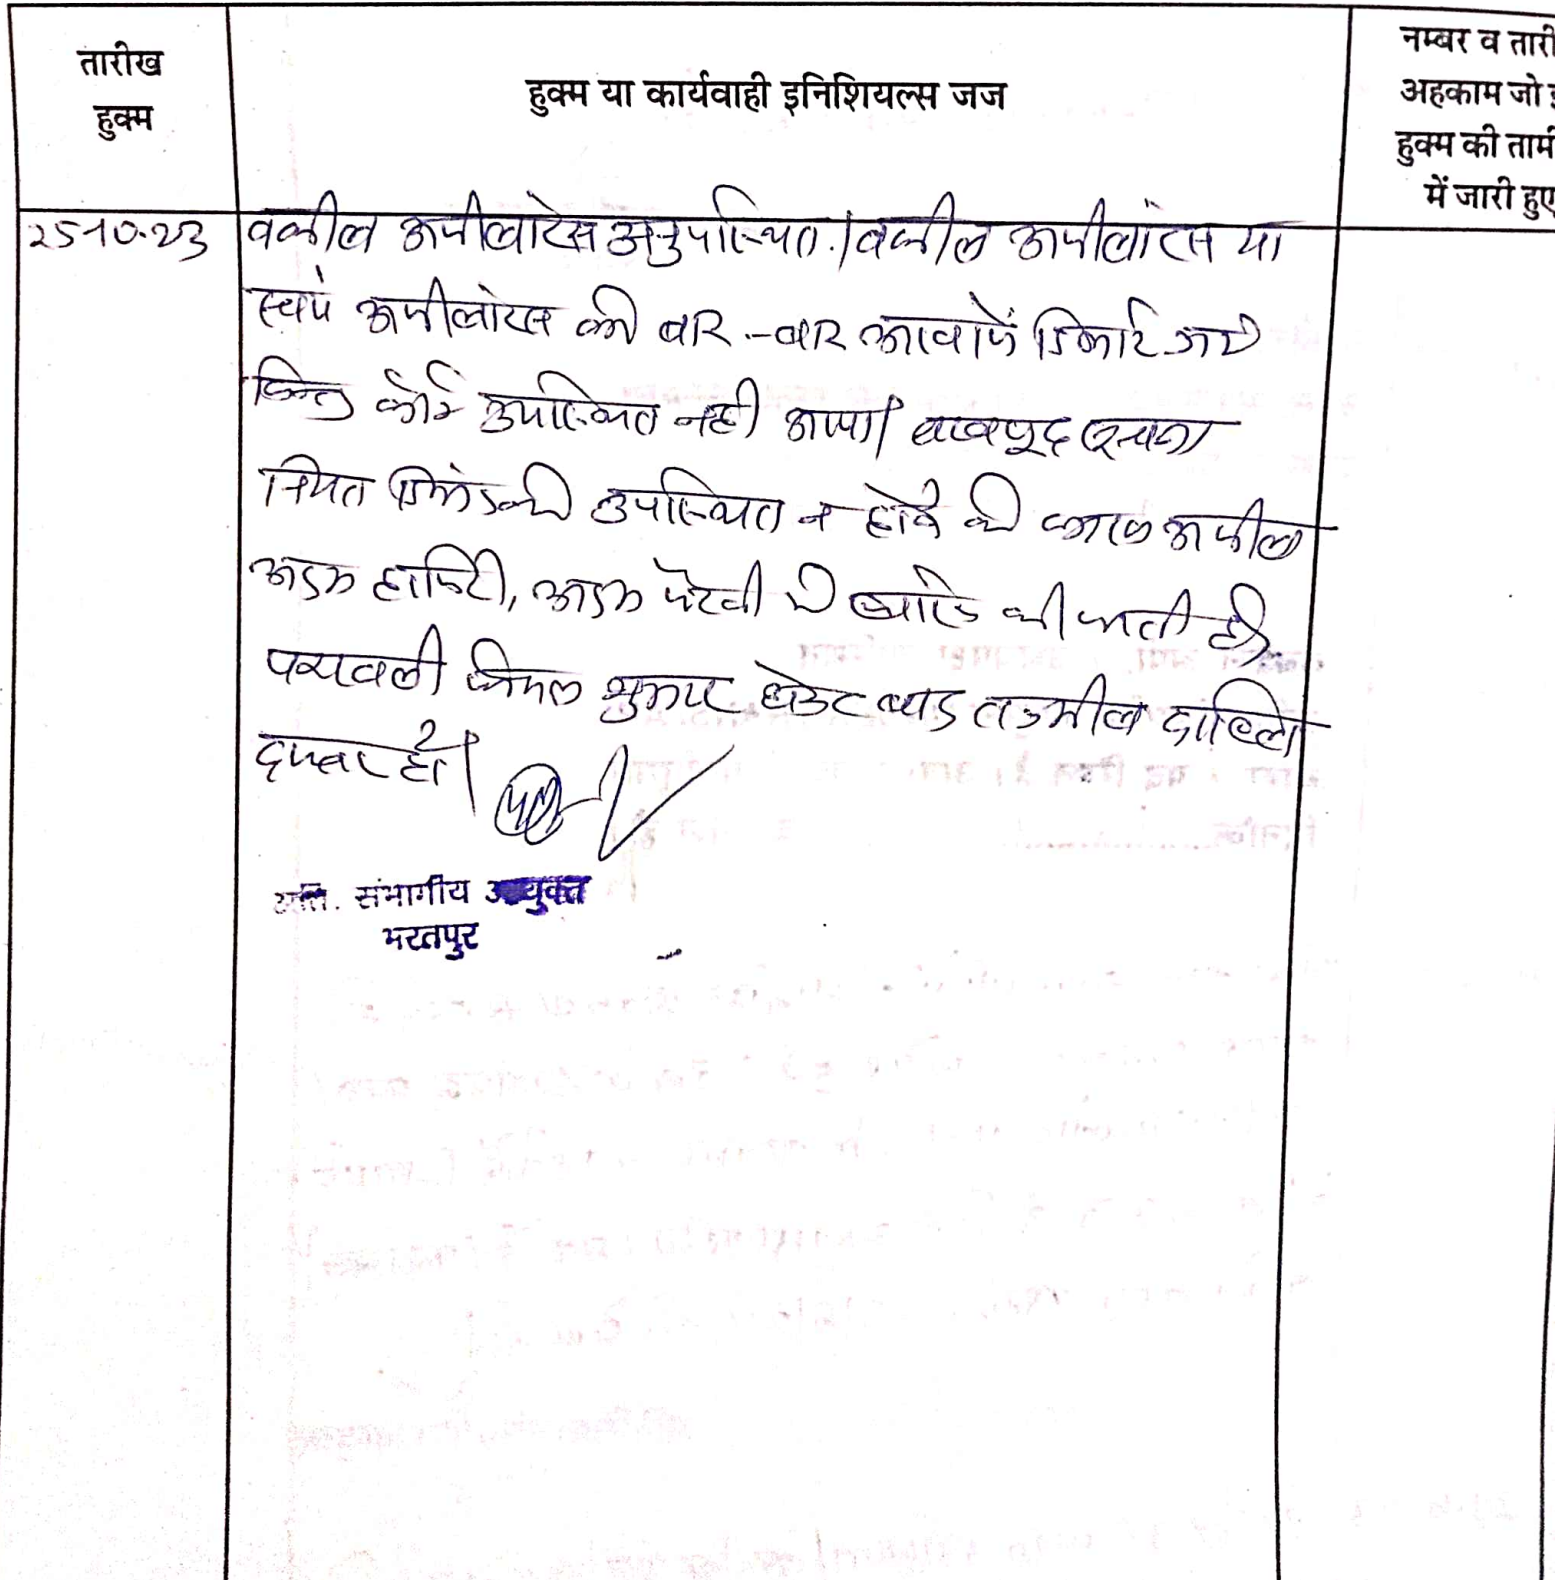 तारीख
हुक्म
हुक्म या कार्यवाही इनिशियल्स जज
नम्बर व तारी
अहकाम जो इ
हुक्म की तामी
में जारी हुए
25-10-23
वकील अपीलांटस अनुपस्थित । वकील अपीलांटस या
स्वयं अपीलांटस की बार-बार आवाजें दिलाई गयी
किन्तु कोई उपस्थित नही आया। बावजूद सूचना
नियत दिनांक को उपस्थित न होने के कारण अपील
अदम हाजिरी, अदम पैरवी में खारिज की जाती है।
पत्रावली फैसल शुमार होकर बाद तकमील दाखिल
दफ्तर हो।
अति. संभागीय आयुक्त
भरतपुर